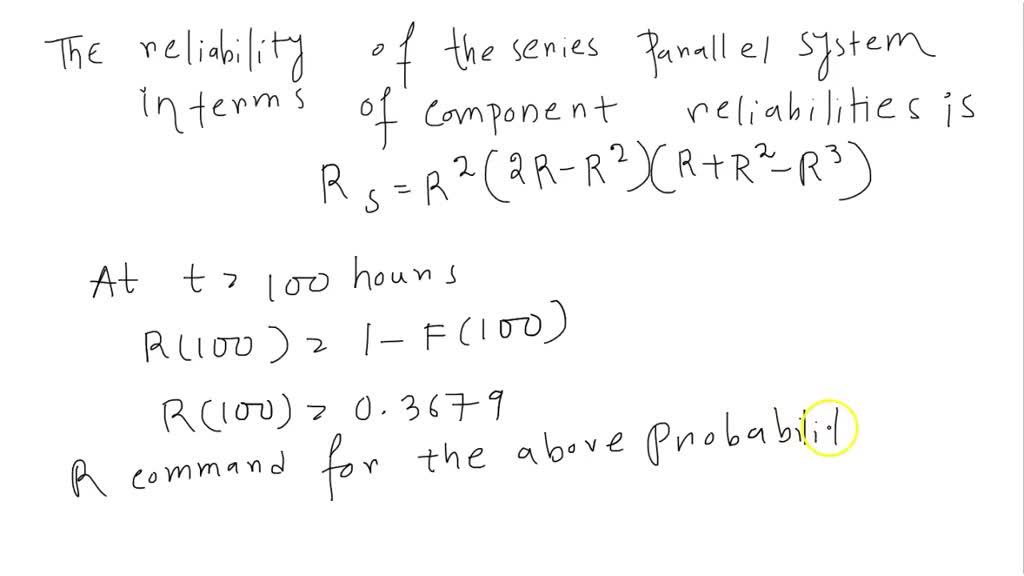 The reliability of the series Parallel system
in terms of component reliabilities is
R_s = R^2(2R-R^2)(R+R^2-R^3)
At t = 100 hours
R(100) = 1-F(100)
R(100) = 0.3679
R command for the above Probabili